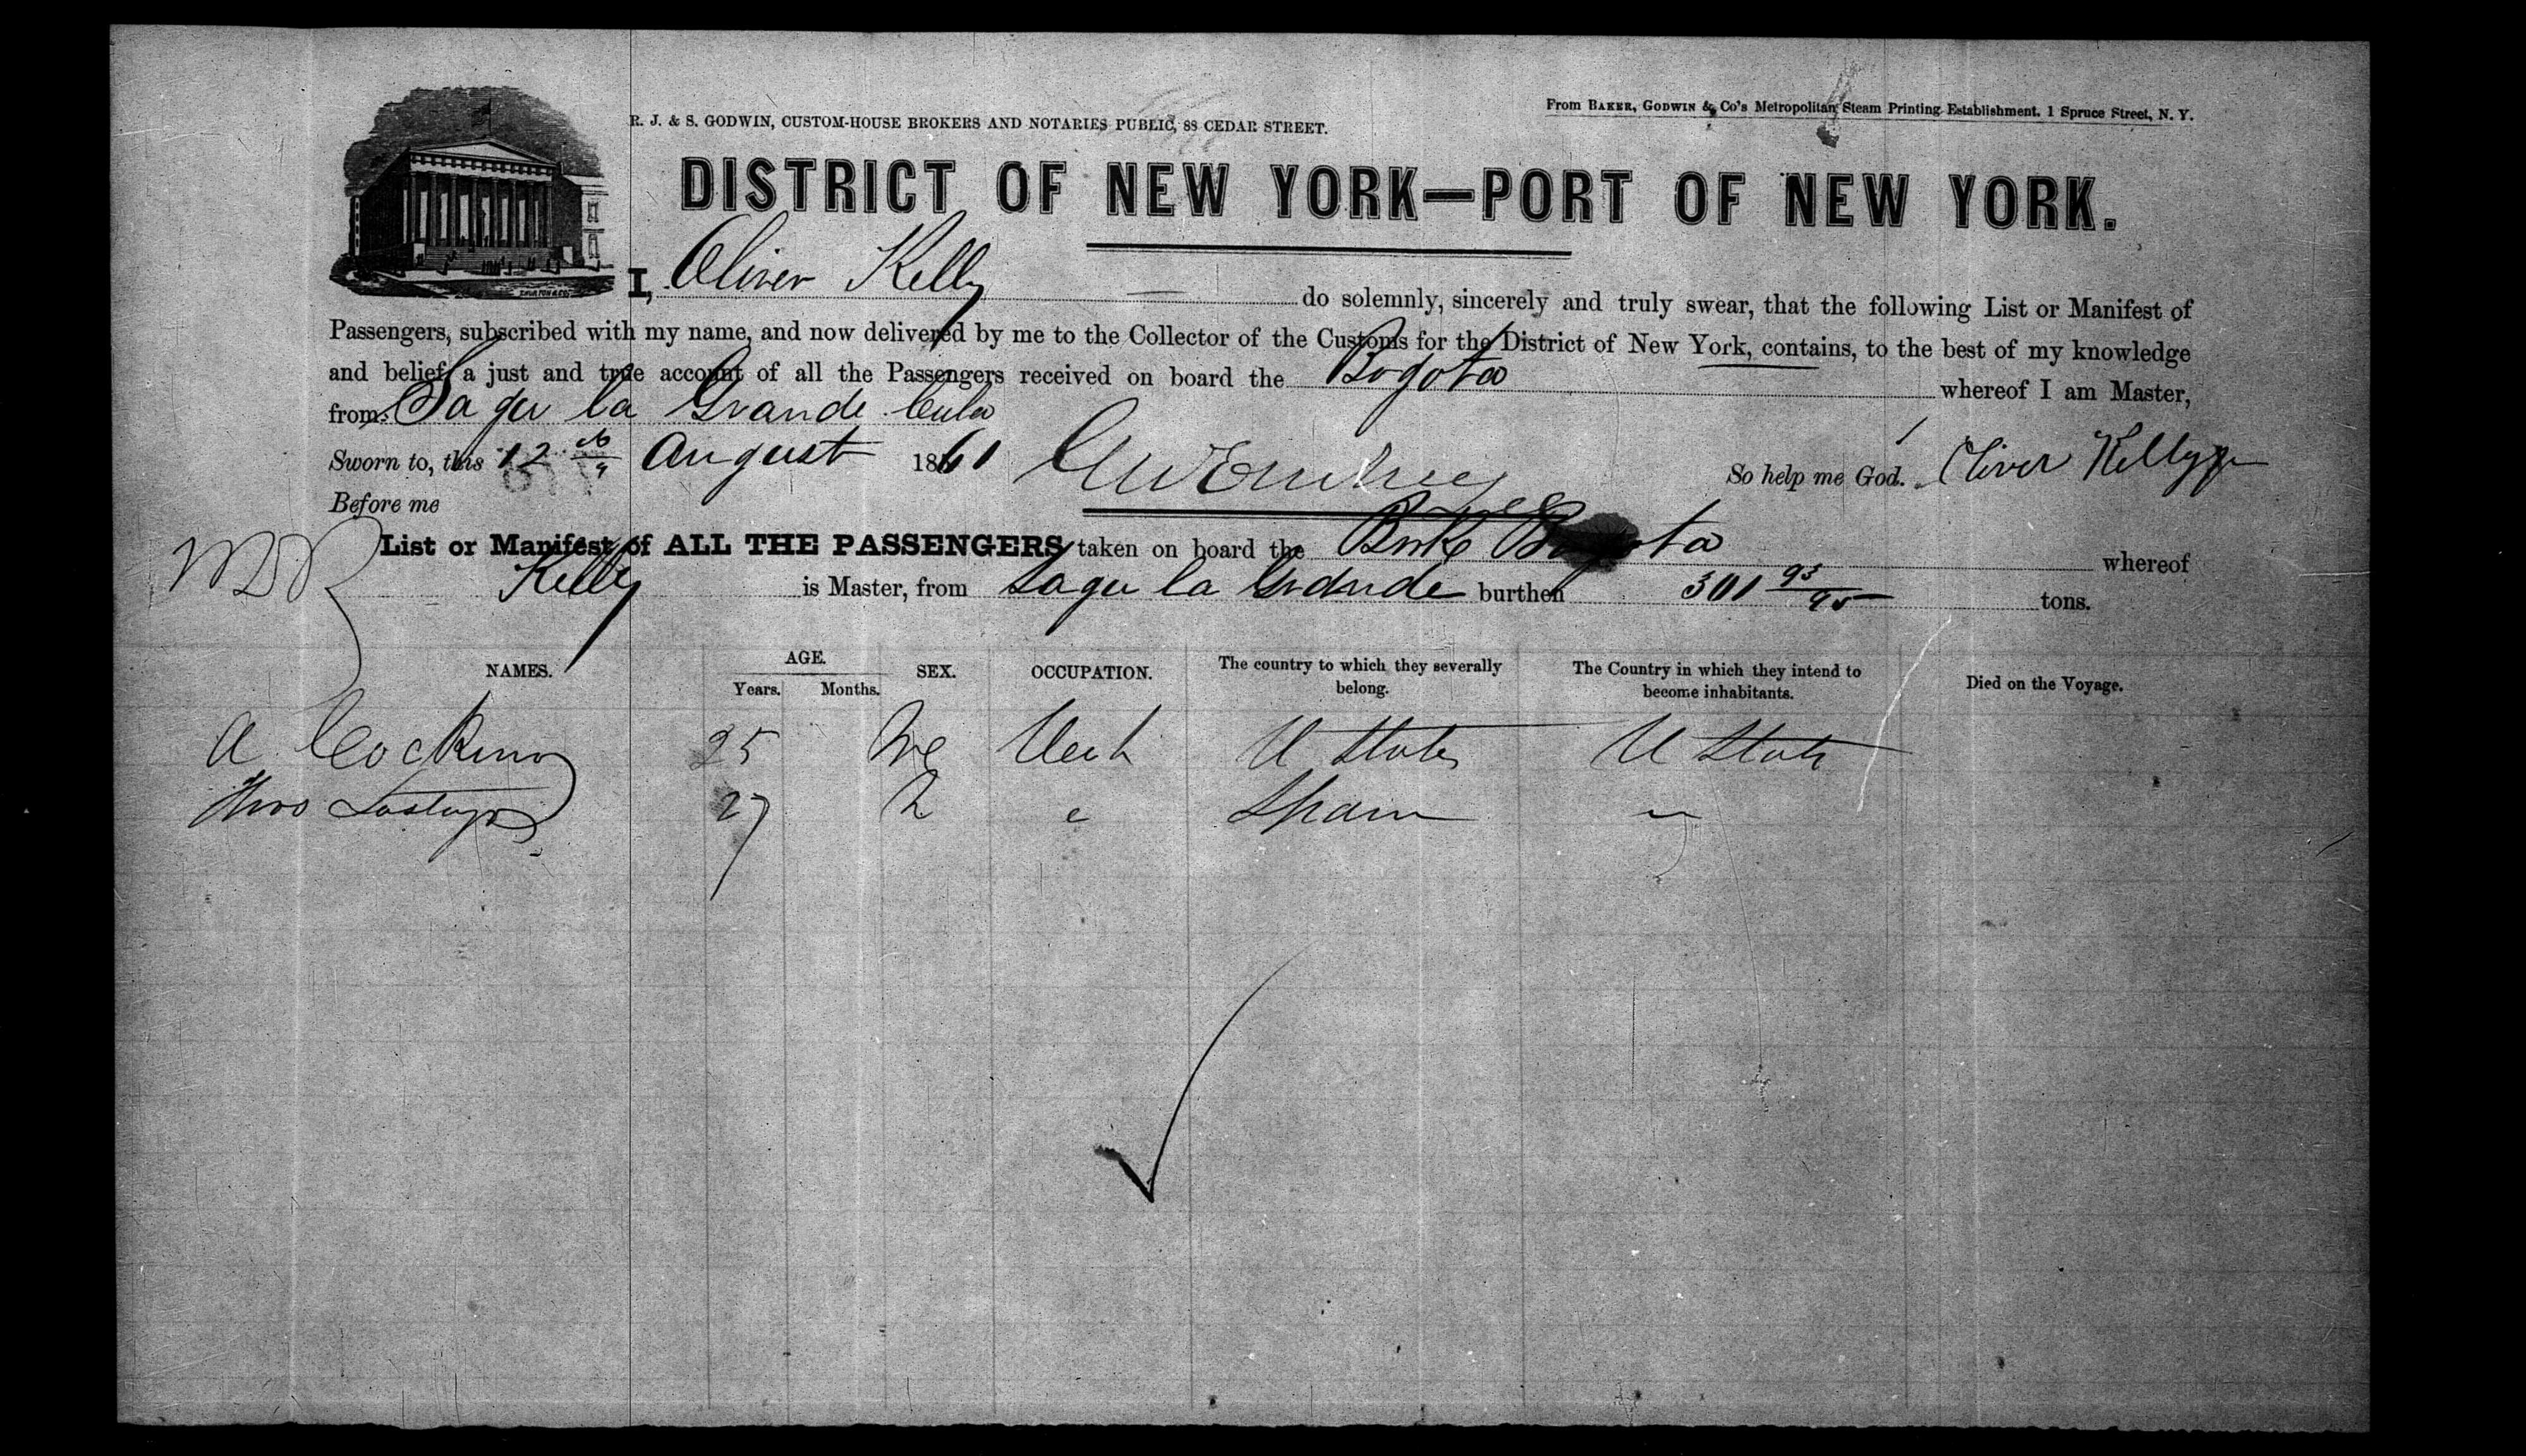 R. J. & S. GODWIN, CUSTOM-HOUSE BROKERS AND NOTARIES PUBLIC, 88 CEDAR STREET.
From BAKER, GODWIN & Co's Metropolitan Steam Printing Establishment. 1 Spruce Street, N. Y.
DISTRICT OF NEW YORK—PORT OF NEW YORK.
I, Oliver Kelly do solemnly, sincerely and truly swear, that the following List or Manifest of
Passengers, subscribed with my name, and now delivered by me to the Collector of the Customs for the District of New York, contains, to the best of my knowledge
and belief, a just and true account of all the Passengers received on board the Bogota whereof I am Master,
from Sagu la Grande Cuba
Sworn to, this 12 August 1861 So help me God. Oliver Kelly
Before me
List or Manifest of ALL THE PASSENGERS taken on board the Bark Bogota whereof
Kelly is Master, from Sagu la Grande burthen 301 93/95 tons.
NAMES. AGE. Years. Months. SEX. OCCUPATION. The country to which they severally belong. The Country in which they intend to become inhabitants. Died on the Voyage.
A 25 U States U States
27 Spain "